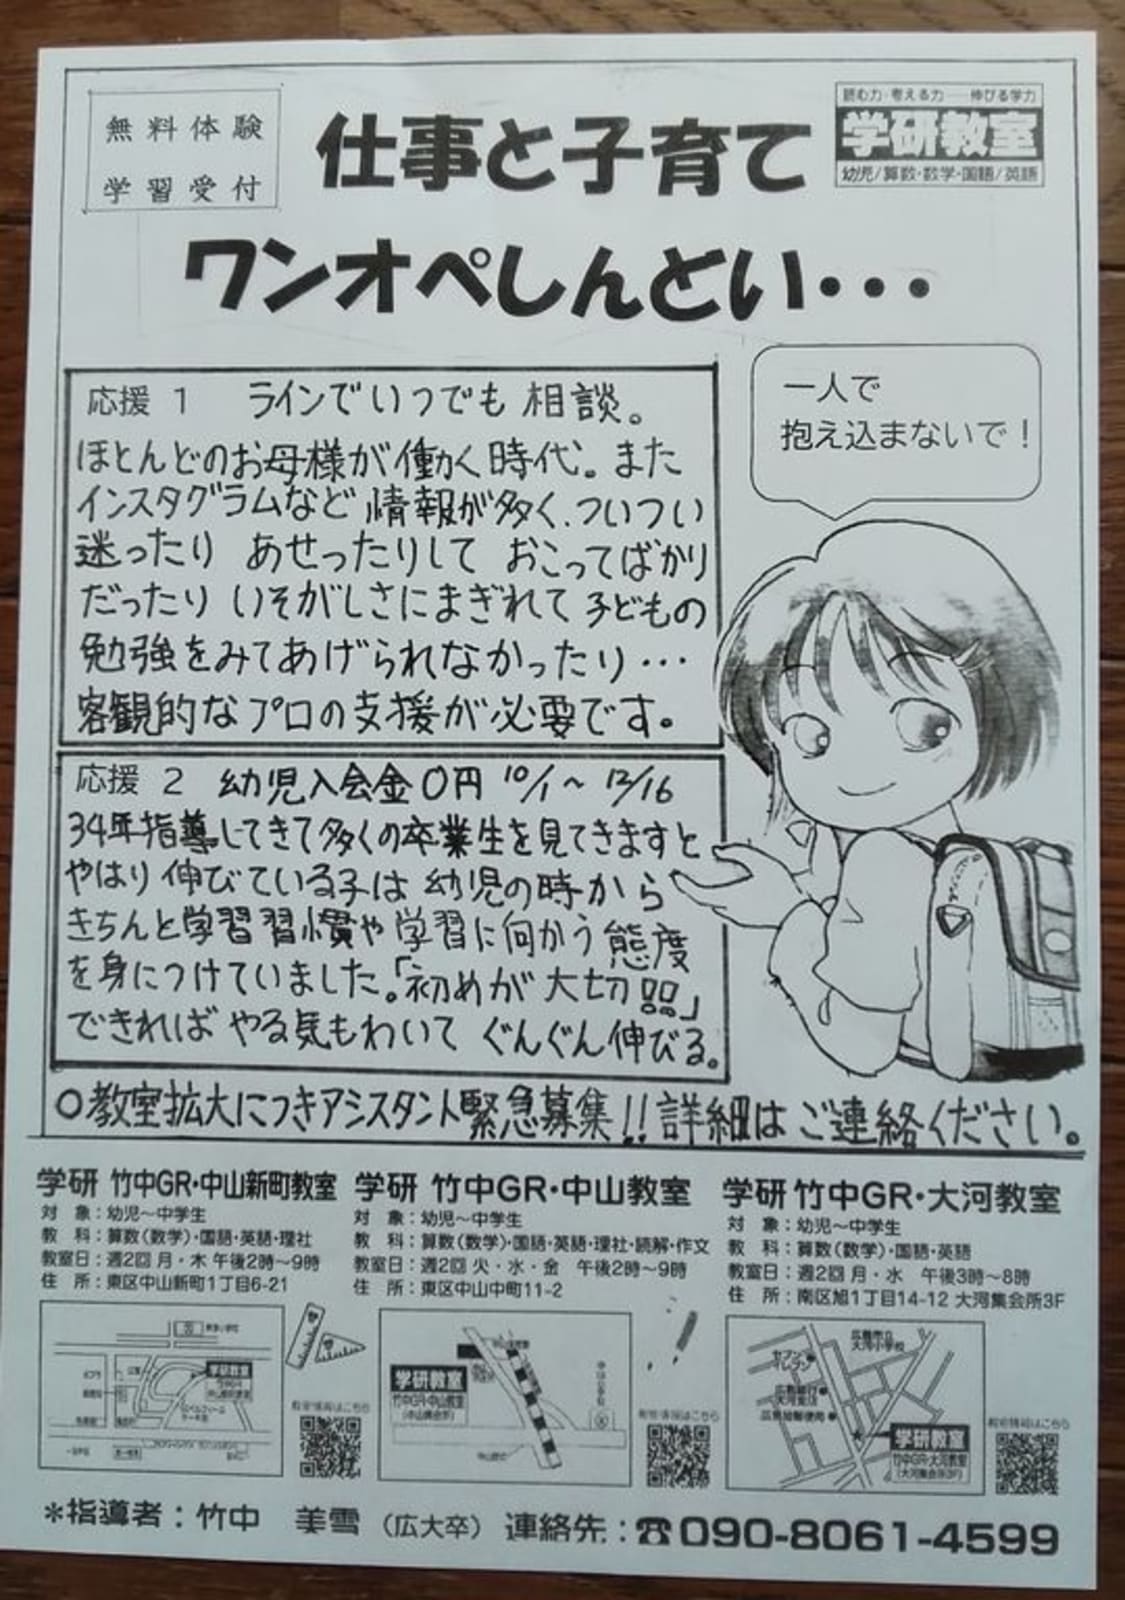 無料体験
学習受付
仕事と子育て
ワンオペしんどい・・・
読む力・考える力──伸びる学力
学研教室
幼児/算数・数学・国語/英語
一人で
抱え込まないで！
応援 1 ラインでいつでも相談。
ほとんどのお母様が働く時代。また
インスタグラムなど情報が多く、ついつい
迷ったり あせったりして おこってばかり
だったり いそがしさにまぎれて子どもの
勉強をみてあげられなかったり…
客観的なプロの支援が必要です。
応援 2 幼児入会金0円 10/1〜12/16
34年指導してきて多くの卒業生を見てきますと
やはり伸びている子は幼児の時から
きちんと学習習慣や学習に向かう態度
を身につけていました。「初めが大切!!」
できればやる気もわいて ぐんぐん伸びる。
○教室拡大につきアシスタント緊急募集!!詳細はご連絡ください。
学研 竹中GR・中山新町教室
対 象：幼児〜中学生
教 科：算数(数学)・国語・英語・理社
教室日：週2回 月・木 午後2時〜9時
住 所：東区中山新町1丁目6-21
学研 竹中GR・中山教室
対 象：幼児〜中学生
教 科：算数(数学)・国語・英語・理社・読解・作文
教室日：週2回 火・水・金 午後2時〜9時
住 所：東区中山中町11-2
学研 竹中GR・大河教室
対 象：幼児〜中学生
教 科：算数(数学)・国語・英語
教室日：週2回 月・水 午後3時〜8時
住 所：南区旭1丁目14-12 大河集会所3F
学研教室
教室情報はこちら
学研教室
竹中GR・中山教室
教室情報はこちら
広島市立
大河小学校
セブン
イレブン
広島銀行
大河支店
広島旭郵便局
学研教室
竹中GR・大河教室
(大河集会所3F)
教室情報はこちら
＊指導者：竹中 美雪（広大卒）連絡先：☎090-8061-4599